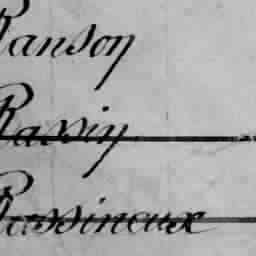 Ranson
Rassin
Rassineux